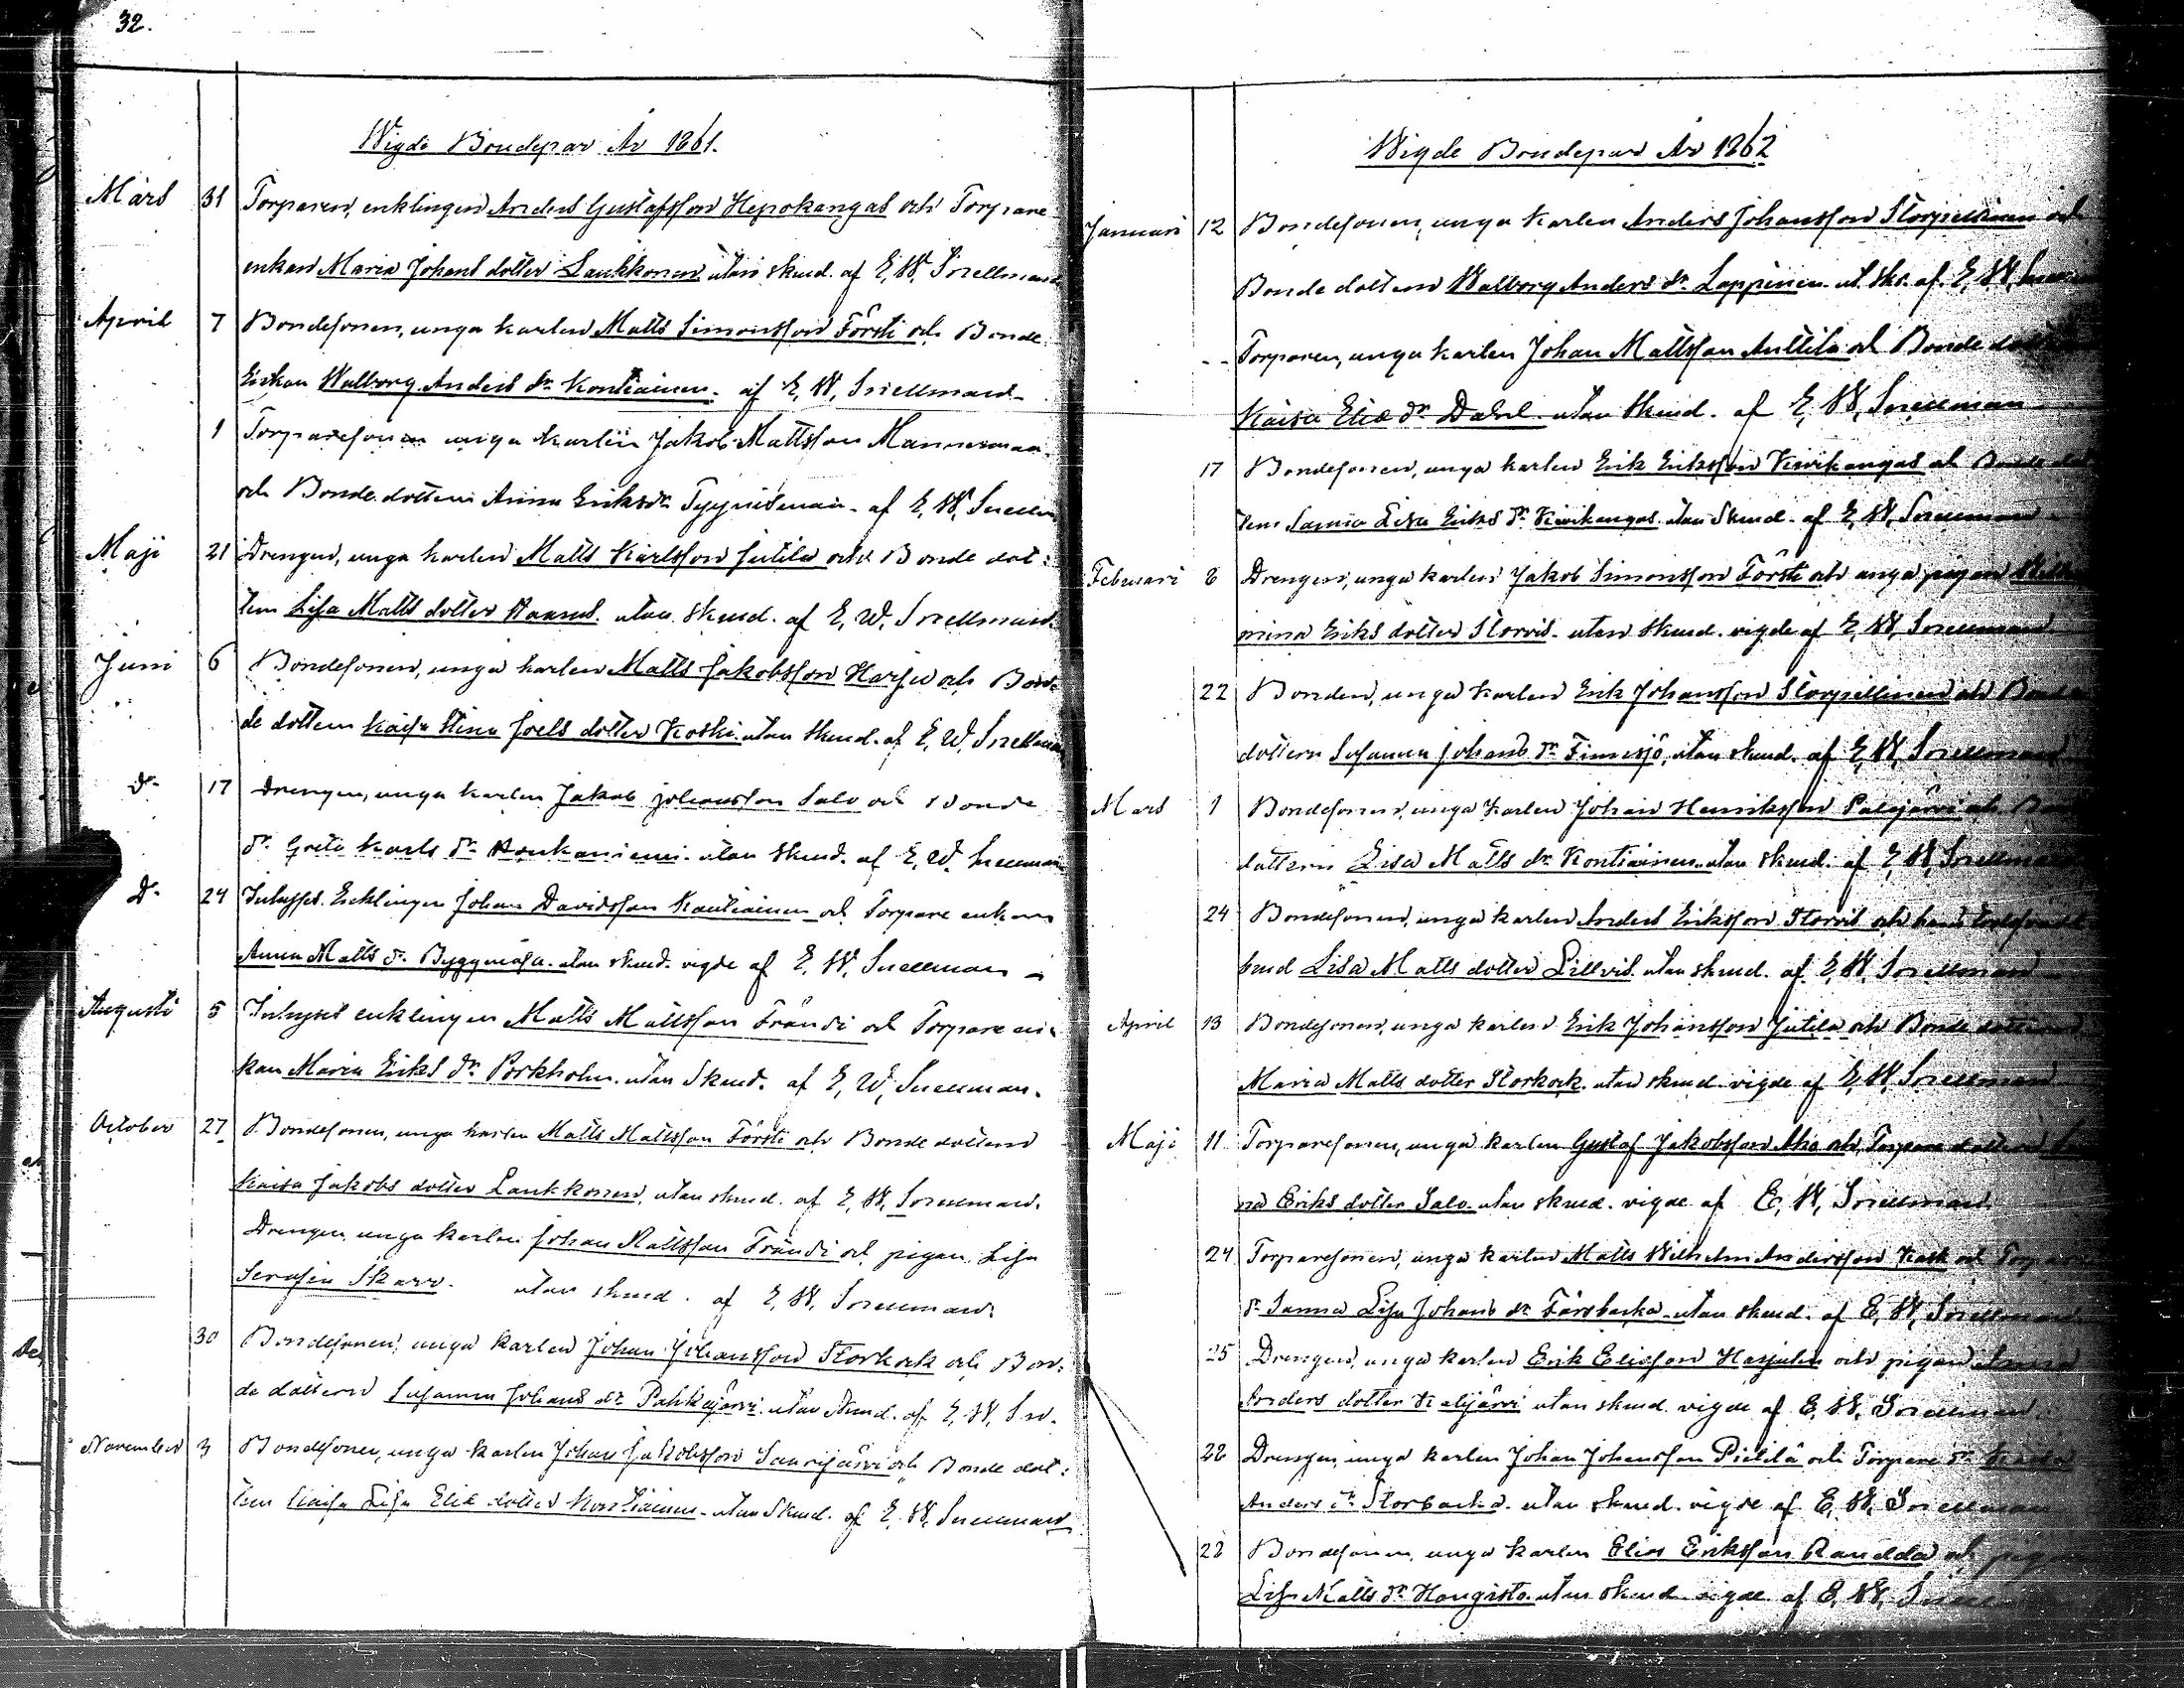 32.
Wigde Brudepar År 1861.
Mars 31 Torparen, enklingen Anders Gustafsson Hepokangas och Torpare
enkan Maria Johans dotter Laukkonen utan skmd. af E, W. Snellman
April 7 Bondesonen, unga karlen Matts Simonsson Försti och Bonde
Enkan Walborg Anders dr Kontiainen. af E, W, Snellman
1 Torparesonen unga karlen Jakob Mattsson Mannermaa
och Bonde dottern Anna Eriksdr af E, W, Snellm
Maji 21 Drengen, unga karlen Matts Karlsson Jutila och Bonde dot:
tern Lisa Matts dotter utan skmd. af E, W. Snellman.
Juni 6 Bondesonen, unga karlen Matts Jakobsson Harju och Bon:
de dottern Kaisa Stina Joels dotter Koski utan skmd. af E, W. Snellman
do 17 Drengen, unga karlen Jakob Johansson Salo och Bonde
dr Greta Karls dr utan skmd. af E, W. Snellman
do 24 Inhyses Enklingen Johan Davidsson Kontiainen och Torpare enkan
Anna Matts dr utan skmd. vigde af E, W. Snellman
Augusti 5 Inhyses enklingen Matts Mattsson Frändi och Torpare en:
kan Maria Eriks dr Porkholm. utan Skmd. af E, W, Snellman.
October 27 Bondesonen, unga karlen Matts Mattsson Försti och Bonde dottern
Kaisa Jakobs dotter Laukkonen, utan skmd. af E, W, Snellman.
Drengen unga karlen Johan Mattsson Frändi och pigan Lisa
Serafia Skarv. utan skmd. af E, W, Snellman.
30 Bondesonen, unga karlen Johan Johansson Storkork och Bon:
de dottern Susanna Johans dr Pahkajärvi. utan skmd. af E, W, Sn.
November 3 Bondesonen, unga karlen Johan Jakobsson Saarijärvi och Bonde dot:
tern Kaisa Lisa Eliæ dotter Kontiainen. utan Skmd. af E, W. Snellman
Wigde Brudepar År 1862
Januari 12 Bondesonen, unga karlen Anders Johansson Storpellinen och
Bonde dottern Walborg Anders dr Lappinen. ut. sk. af. E, W,
Torparen, unga karlen Johan Mattsson Anttila och Bonde
Kaisa Eliæ dr Dahl utan skmd. af E, W, Snellman
17 Bondesonen, unga karlen Erik Eriksson Kivikangas och Bonde dot
tern Sanna Lisa Eriks dr Kivikangas utan Skmd. af E, W, Snellman
Februari 8 Drengen, unga karlen Jakob Simonsson Försti och unga pigan
mina Eriks dotter Storvis. utan skmd. vigde af E, W, Snellman
22 Bonden, unga karlen Erik Johansson Storpellinen och Bonde
dottern Susanna Johans dr Finnsjö, utan skmd. af E, W, Snellman
Mars 1 Bondesonen, unga karlen Johan Henriksson Palojärvi och
dottern Lisa Matts dr Kontiainen. utan skmd. af E, W, Snellman
24 Bondesonen, unga karlen Anders Eriksson Storvis och hans
brud Lisa Matts dotter Lillvis. utan skmd. af E, W, Snellman
April 13 Bondesonen, unga karlen Erik Johansson Jutila och Bonde dottern
Maria Matts dotter Storkork. utan skmd. vigde af E, W, Snellman
Maji 11 Torparesonen, unga karlen Gustaf Jakobsson Aho och Torpare dottern
na Eriks dotter Salo utan skmd. vigde af E, W, Snellman
24 Torparesonen, unga karlen Matts Wilhelm Andersson Kask och Torpare
dr Sanna Lisa Johans dr Fårsbacka utan skmd. af E, W, Snellman
25 Drengen, unga karlen Erik Eliasson Harjula och pigan
Anders dotter utan skmd. vigde af E, W, Snellman.
28 Drengen, unga karlen Johan Johansson Pietilä och Torpare dr
Anders dr Storbacka. utan skmd. vigde af E, W, Snellman
28 Bondesonen, unga karlen Elias Eriksson Randda och
Lisa Matts dr Haugisto utan skmd vigde af E, W,